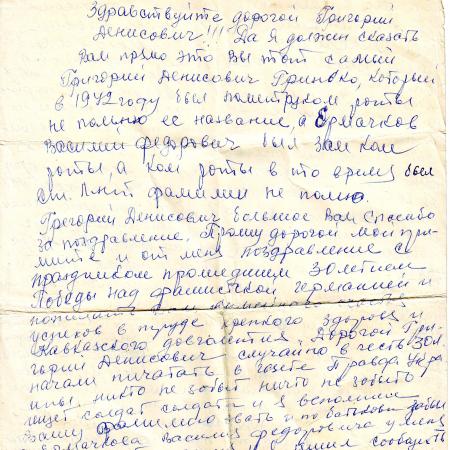 Здравствуйте дорогой Григорий
Денисович!!! Да я должен сказать
Вам прямо это Вы тот самый
Григорий Денисович Гринько, который
в 1942 году был политруком роты
не помню ее название, а Ермачков
Василий Федорович был зам ком
роты, а ком роты в это время был
ст. Л-нт фамилии не помню.
Григорий Денисович большое Вам спасибо
за поздравление. Прошу дорогой мой при-
мите и от меня поздравление с
праздником прошедшим 30летием
Победы над фашисткой германией и
пожелать Вам
успехов в труде крепкого здоровя и
Кавказского долголетия. Дорогой Гри-
горий Денисович случайно в честь 30л
начали пичатать в газете Правда Укра
ины. никто не забыт ничто не забыто
ищет солдат солдата и я вспомнил
Вашу фамилию звать и по батькови забыл
Ермачкова Василия Федоровича у меня
сообщить